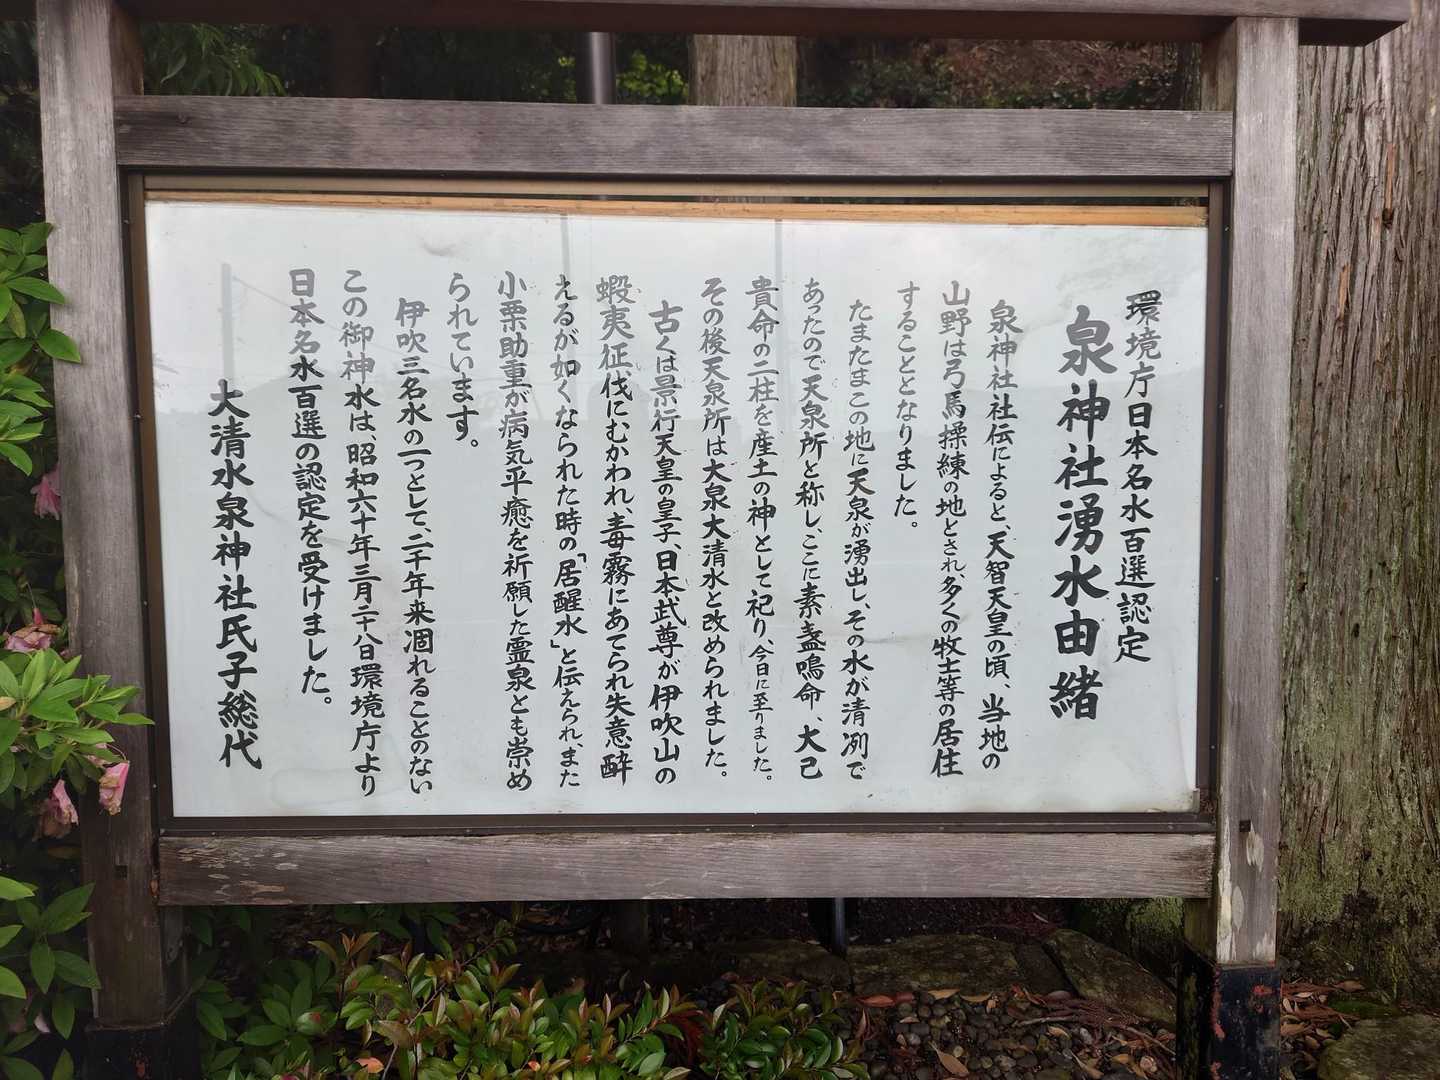 環境庁日本名水百選認定
泉神社湧水由緒
泉神社社伝によると、天智天皇の頃、当地の
山野は弓馬操練の地とされ、多くの牧士等の居住
することとなりました。
たまたまこの地に天泉が湧出し、その水が清冽で
あったので天泉所と称し、ここに素盞鳴命、大己
貴命の二柱を産土の神として祀り、今日に至りました。
その後天泉所は大泉大清水と改められました。
古くは景行天皇の皇子、日本武尊が伊吹山の
蝦夷征伐にむかわれ、毒霧にあてられ失意酔
えるが如くなられた時の「居醒水」と伝えられ、また
小栗助重が病気平癒を祈願した霊泉とも崇め
られています。
伊吹三名水の一つとして、二千年来凅れることのない
この御神水は、昭和六十年三月二十八日環境庁より
日本名水百選の認定を受けました。
大清水泉神社氏子総代